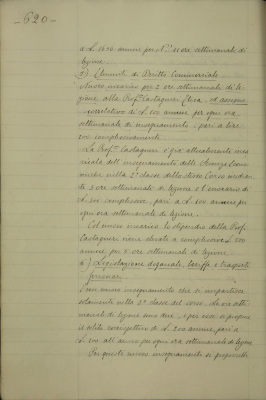 - 620 -
a L. 1600 annue per N.º 11 ore settimanali di
lezione.
5) Elementi di Diritto Commerciale
Nuovo incarico per 2 ore settimanali di le-
zione alla Prof. Castagneri Elisa, ed assegno
corrispettivo di L. 100 annue per ogni ora
settimanale di insegnamento, pari a lire
200 complessivamente.
La Prof. Castagneri è già attualmente inca-
ricata dell'insegnamento delle Scienze Econo-
miche nella 2ª classe dello stesso Corso medio
di 3 ore settimanali di lezione e l'onorario di
L. 300 complessive, pari a L. 100 annue per
ogni ora settimanale di lezione.
Col nuovo incarico lo stipendio della Prof.
Castagneri viene elevato a complessive L. 500
annue per 5 ore settimanali di lezione.
6) Legislazione doganale, tariffe e trasporti
ferroviari.
È un nuovo insegnamento che si impartisce
solamente nella 3ª classe del corso. Le ore setti-
manali di lezione sono due, e per esse si propone
il solito corrispettivo di L. 200 annue, pari a
L. 100 all'anno per ogni ora settimanale.
Per questo nuovo insegnamento si propone